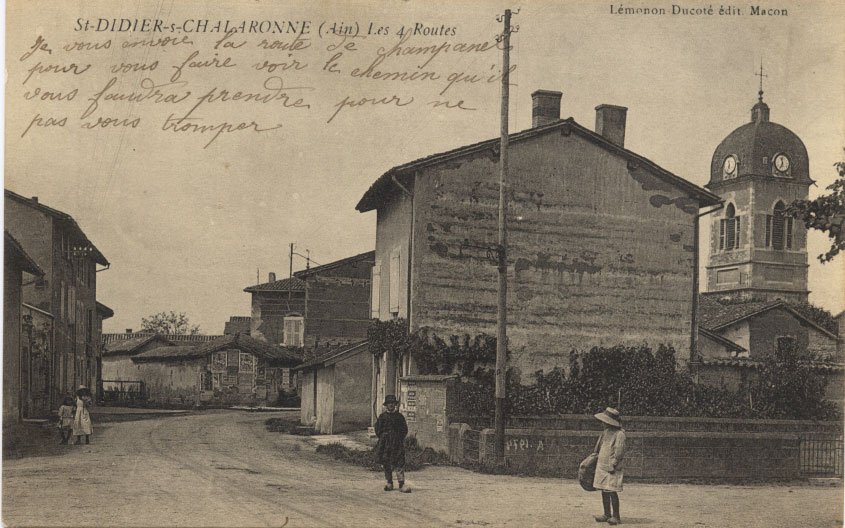 St-DIDIER-s-CHALARONNE (Ain) Les 4 Routes
Lémonon-Ducoté édit. Macon
Je vous envoie la route de champanel
pour vous faire voir le chemin qu'il
vous faudra prendre pour ne
pas vous tromper